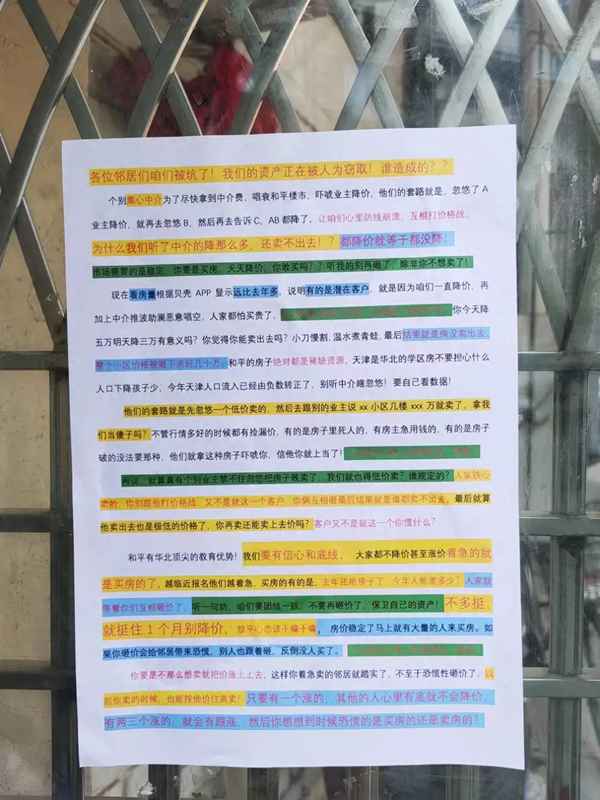 各位邻居们咱们被坑了！我们的资产正在被人为窃取！谁造成的？？
个别黑心中介为了尽快拿到中介费，唱衰和平楼市，吓唬业主降价，他们的套路就是，忽悠了 A
业主降价，就再去忽悠 B，然后再去告诉 C，AB 都降了，让咱们心里防线崩溃，互相打价格战。
为什么我们听了中介的降那么多，还卖不出去！？都降价就等于都没降，
市场需要的是稳定，你要是买房，天天降价，你敢买吗？？听我的别再砸了，除非你不想卖了！
现在看房量根据贝壳 APP 显示远比去年多，说明有的是潜在客户，就是因为咱们一直降价，再
加上中介推波助澜恶意唱空，人家都怕买贵了，你今天降
五万明天降三万有意义吗？你觉得你能卖出去吗？小刀慢割，温水煮青蛙，最后结果就是你没卖出去，
整个小区价格被砸下来好几十万。和平的房子绝对都是稀缺资源，天津是华北的学区房不要担心什么
人口下降孩子少，今年天津人口流入已经由负数转正了，别听中介瞎忽悠！要自己看数据！
他们的套路就是先忽悠一个低价卖的，然后去跟别的业主说 xx 小区几楼 xxx 万就卖了，拿我
们当傻子吗？不管行情多好的时候都有捡漏价，有的是房子里死人的，有房主急用钱的，有的是房子
破的没法要那种，他们就拿这种房子吓唬你，信他你就上当了！
再说，就算真有个别业主禁不住忽悠把房子贱卖了，我们就也得低价卖？谁规定的？人家铁心
卖的，你别跟他打价格战，又不是就这一个客户，你俩互相砸最后结果就是俩都卖不出去，最后就算
他卖出去也是极低的价格了，你再卖还能卖上去价吗？客户又不是就这一个你慌什么？
和平有华北顶尖的教育优势！我们要有信心和底线，大家都不降价甚至涨价着急的就
是买房的了，越临近报名他们越着急，买房的有的是，
等着你们互相砸价了，听一句劝，咱们要团结一致，不要再砸价了，保卫自己的资产！不多挺，
就挺住 1 个月别降价，房价稳定了马上就有大量的人来买房。如
果你砸价会给邻居带来恐慌，别人也跟着砸，反倒没人买了。
你要是不那么想卖就把价涨上去，这样你着急卖的邻居就踏实了，不至于恐慌性砸价，
你卖的时候，也能按他价往高卖！只要有一个涨的，其他的人心里有底就不会降价，
有两三个涨的，就会有跟涨，然后你想想到时候恐慌的是买房的还是卖房的？